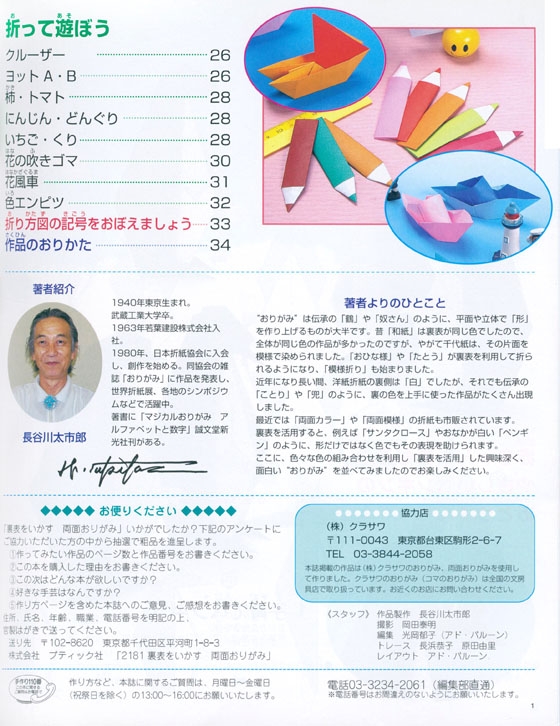 折って遊ぼう
クルーザー 26
ヨットA・B 26
柿・トマト 28
にんじん・どんぐり 28
いちご・くり 28
花の吹きゴマ 30
花風車 31
色エンピツ 32
折り方図の記号をおぼえましょう 33
作品のおりかた 34
著者紹介
1940年東京生まれ。
武蔵工業大学卒。
1963年若葉建設株式会社入
社。
1980年、日本折紙協会に入会
し、創作を始める。同協会の雑
誌「おりがみ」に作品を発表し、
世界折紙展、各地のシンポジウ
ムなどで活躍中。
著書に「マジカルおりがみ　ア
ルファベットと数字」誠文堂新
光社刊がある。
長谷川太市郎
著者よりのひとこと
“おりがみ”は伝承の「鶴」や「奴さん」のように、平面や立体で「形」
を作り上げるものが大半です。昔「和紙」は裏表が同じ色でしたので、
全体が同じ色の作品が多かったのですが、やがて千代紙は、その片面を
模様で染められました。「おひな様」や「たとう」が裏表を利用して折ら
れるようになり、「模様折り」も始まりました。
近年になり長い間、洋紙折紙の裏側は「白」でしたが、それでも伝承の
「ことり」や「兜」のように、裏の色を上手に使った作品がたくさん出現
しました。
最近では「両面カラー」や「両面模様」の折紙も市販されています。
裏表を活用すると、例えば「サンタクロース」やおなかが白い「ペンギ
ン」のように、形だけではなく色でもその表現を助けられます。
ここに、色々な色の組み合わせを利用し「裏表を活用」した興味深く、
面白い“おりがみ”を並べてみましたのでお楽しみください。
◆◆◆◆◆ お便りください ◆◆◆◆◆
「裏表をいかす　両面おりがみ」いかがでしたか？下記のアンケートに
ご協力いただいた方の中から抽選で粗品を進呈します。
①作ってみたい作品のページ数と作品番号をお書きください。
②この本を購入した理由をお書きください。
③この次はどんな本が欲しいですか？
④好きな手芸はなんですか？
⑤作り方ページを含めた本誌へのご意見、ご感想をお書きください。
住所、氏名、年齢、職業、電話番号を明記の上、
官製はがきで送ってください。
送り先　〒102-8620　東京都千代田区平河町1-8-3
株式会社　ブティック社　「2181 裏表をいかす　両面おりがみ」
協力店
（株）クラサワ
〒111-0043　東京都台東区駒形2-6-7
TEL　03-3844-2058
本誌掲載の作品は（株）クラサワのおりがみ、両面おりがみを使用し
て作りました。クラサワのおりがみ（コマのおりがみ）は全国の文房
具店で取り扱っています。お近くのお店にお問い合わせください。
〈スタッフ〉 作品製作　長谷川太市郎
撮影　岡田泰明
編集　光岡郁子（アド・バルーン）
トレース　長浜恭子　原田由里
レイアウト　アド・バルーン
手作り110番
作り方など、本誌に関するご質問は、月曜日〜金曜日
（祝祭日を除く）の13:00〜16:00にお願いいたします。
電話03-3234-2061（編集部直通）
※電話番号はお間違えのないようにお願いいたします。
1